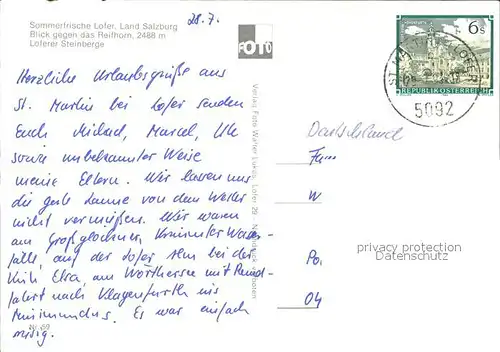 28.7.
Sommerfrische Lofer, Land Salzburg
Blick gegen das Reifhorn, 2488 m
Loferer Steinberge
FOTO
6 s
REPUBLIK ÖSTERREICH
5092
Herzliche Urlaubsgrüße aus
St. Martin bei Lofer senden
Euch Michael, Marcel, Ute
sowie unbekannter Weise
meine Eltern. Wir lassen uns
die gute Laune von dem Wetter
nicht vermießen. Wir waren
am Großglockner, Krimmler Wasser-
fälle, auf der Lofer Alm bei der
am Wörthersee mit Rund-
fahrt nach Klagenfurth ins
Minimundus. Es war einfach
Nr. 59
Verlag Foto Walter Lukas, Lofer 29
Deutschland
Fam
W
Po.
04
privacy protection
Datenschutz